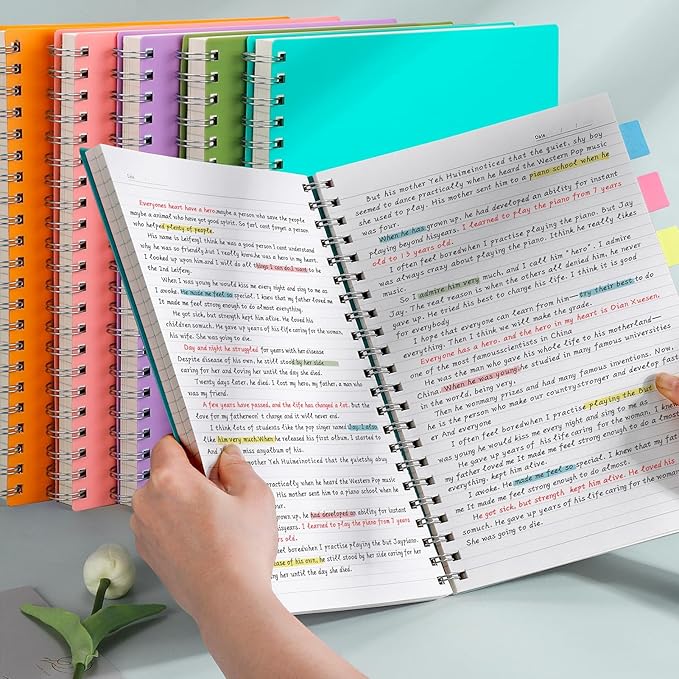 Everyones heart have a hero.maybe a person who save the people
maybe a animal who have got good spirit. So ferl, cant forget a person
who helped plenty of people.
His name is leifeng.I think he was a good person.I cant understand
why he was so friendly.But I really konw he was a hero in my heart.
I looked up upon him and I will do all things I can do.I want to be
the 2nd leifeng.
When I was young he would kiss me every night and sing to me as
I awoke. He made me feel so special. I knew that my father loved me
It made me feel strong enough to do almost everything.
He got sick, but strength kept him alive. He loved his
children somuch. He gave up years of his life caring for the woman,
his wife. She was going to die.
Day and night he struggled for years with her disease
Despite disease of his own, he still stood by her side
caring for her and loving her until the day she died.
Twenty days later, he died. I lost my hero, my father, a man who
was my friend.
A few years have passed, and the life has changed a lot. But the
love for my fatherdon' t change and it will never end.
I think lots of students like the pop singer named Jay. I also
like him very much.When he released his first album. I started to
And I miss anyalbum of his.
mother Yeh Huimei noticed that the quietshy abuy
when he heard the Western Pop Music
sent him to a piano school when he
grown up, he had developed so ability for instant
hisyears. I learned to play the piano from 7 years
years old.
feel boredwhen I practise playing the But Jaypiano.
ease of his own, he still stood by her side caring for her
ing her until the day she died.
Date: / /
But his mother Yeh Huimeinoticed that the quiet, shy boy
seemed to dance practically when he heard the Western Pop music
she used to play. His mother sent him to a piano school when he
was four.
When he has grown up, he had developed an ability for instant
playing beyond hisyears. I learned to play the piano from 7 years
old to 13 years old.
I often feel boredwhen I practise playing the piano. But Jay
was always crazy about playing the piano. Ithink he really likes
So I admire him very much, and I call him " hero" . I admire
Jay. The real reason is when the others all denied him, he never
gave up. He tried his best to change his life. I think it is good
for everybody
I hope that everyone can learn from him—try their best to do
everything. Then I think we will make the grade.
Everyone has a hero. and the hero in my heart is Dian Xuesen.
one of the most famousscientists in China.
He was the man who gave his whole life to his motherland—
China.When he was young,he studied in many famous universities
in the world, being very.
Then he wonmany prizes and had many famous inventions. Now,
he is the person who make our countrystronger and develop fast
er And everyone
I often feel boredwhen I practise playing the
I was young he would kiss me every night and sing to me as
He gave up years of his life caring for the woman.
my father loved me It made me feel strong enough to do a
everything. kept him alive.
I awoke. He made me feel so special. I knew that my father
It made me feel strong enough to do almost.
He got sick, but strength kept him alive. He loved his
somuch. He gave up years of his life caring for the woman.
She was going to die.